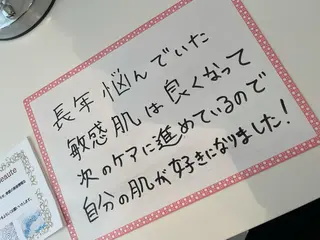 長年悩んでいた
敏感肌は良くなって
次のケアに進めているので
自分の肌が好きになりました!
eaute